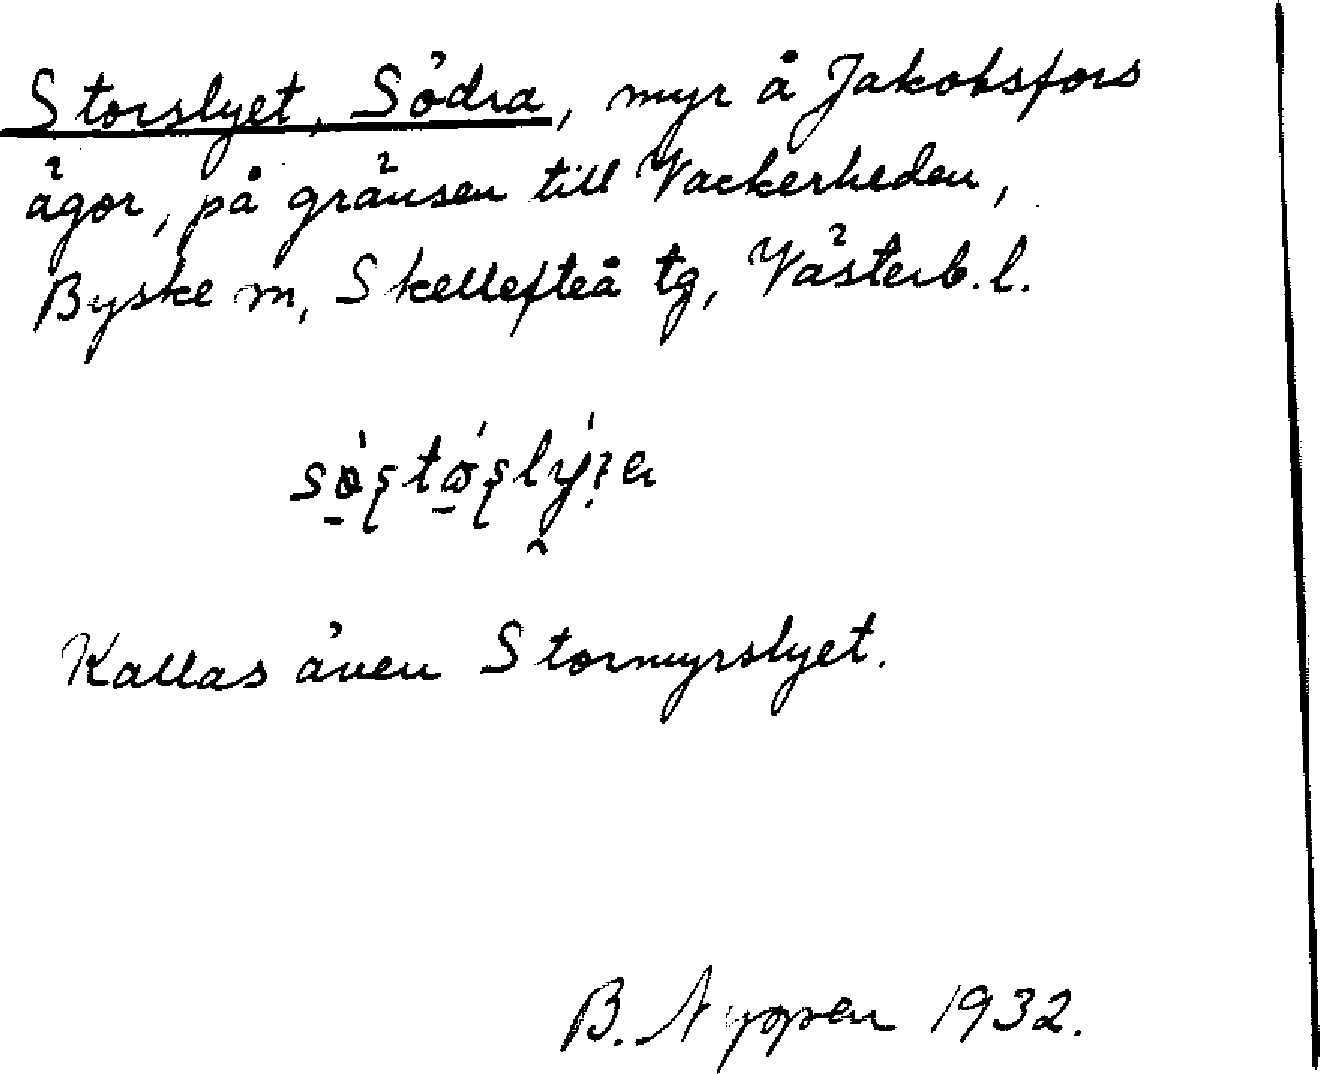 Storslyet, Södra, myr å Jakobsfors
ägor, på gränsen till Vackerheden,
Byske sn, Skellefteå tg, Västerb. l.
Kallas även Stormyrslyet.
B. Nyppen 1932.